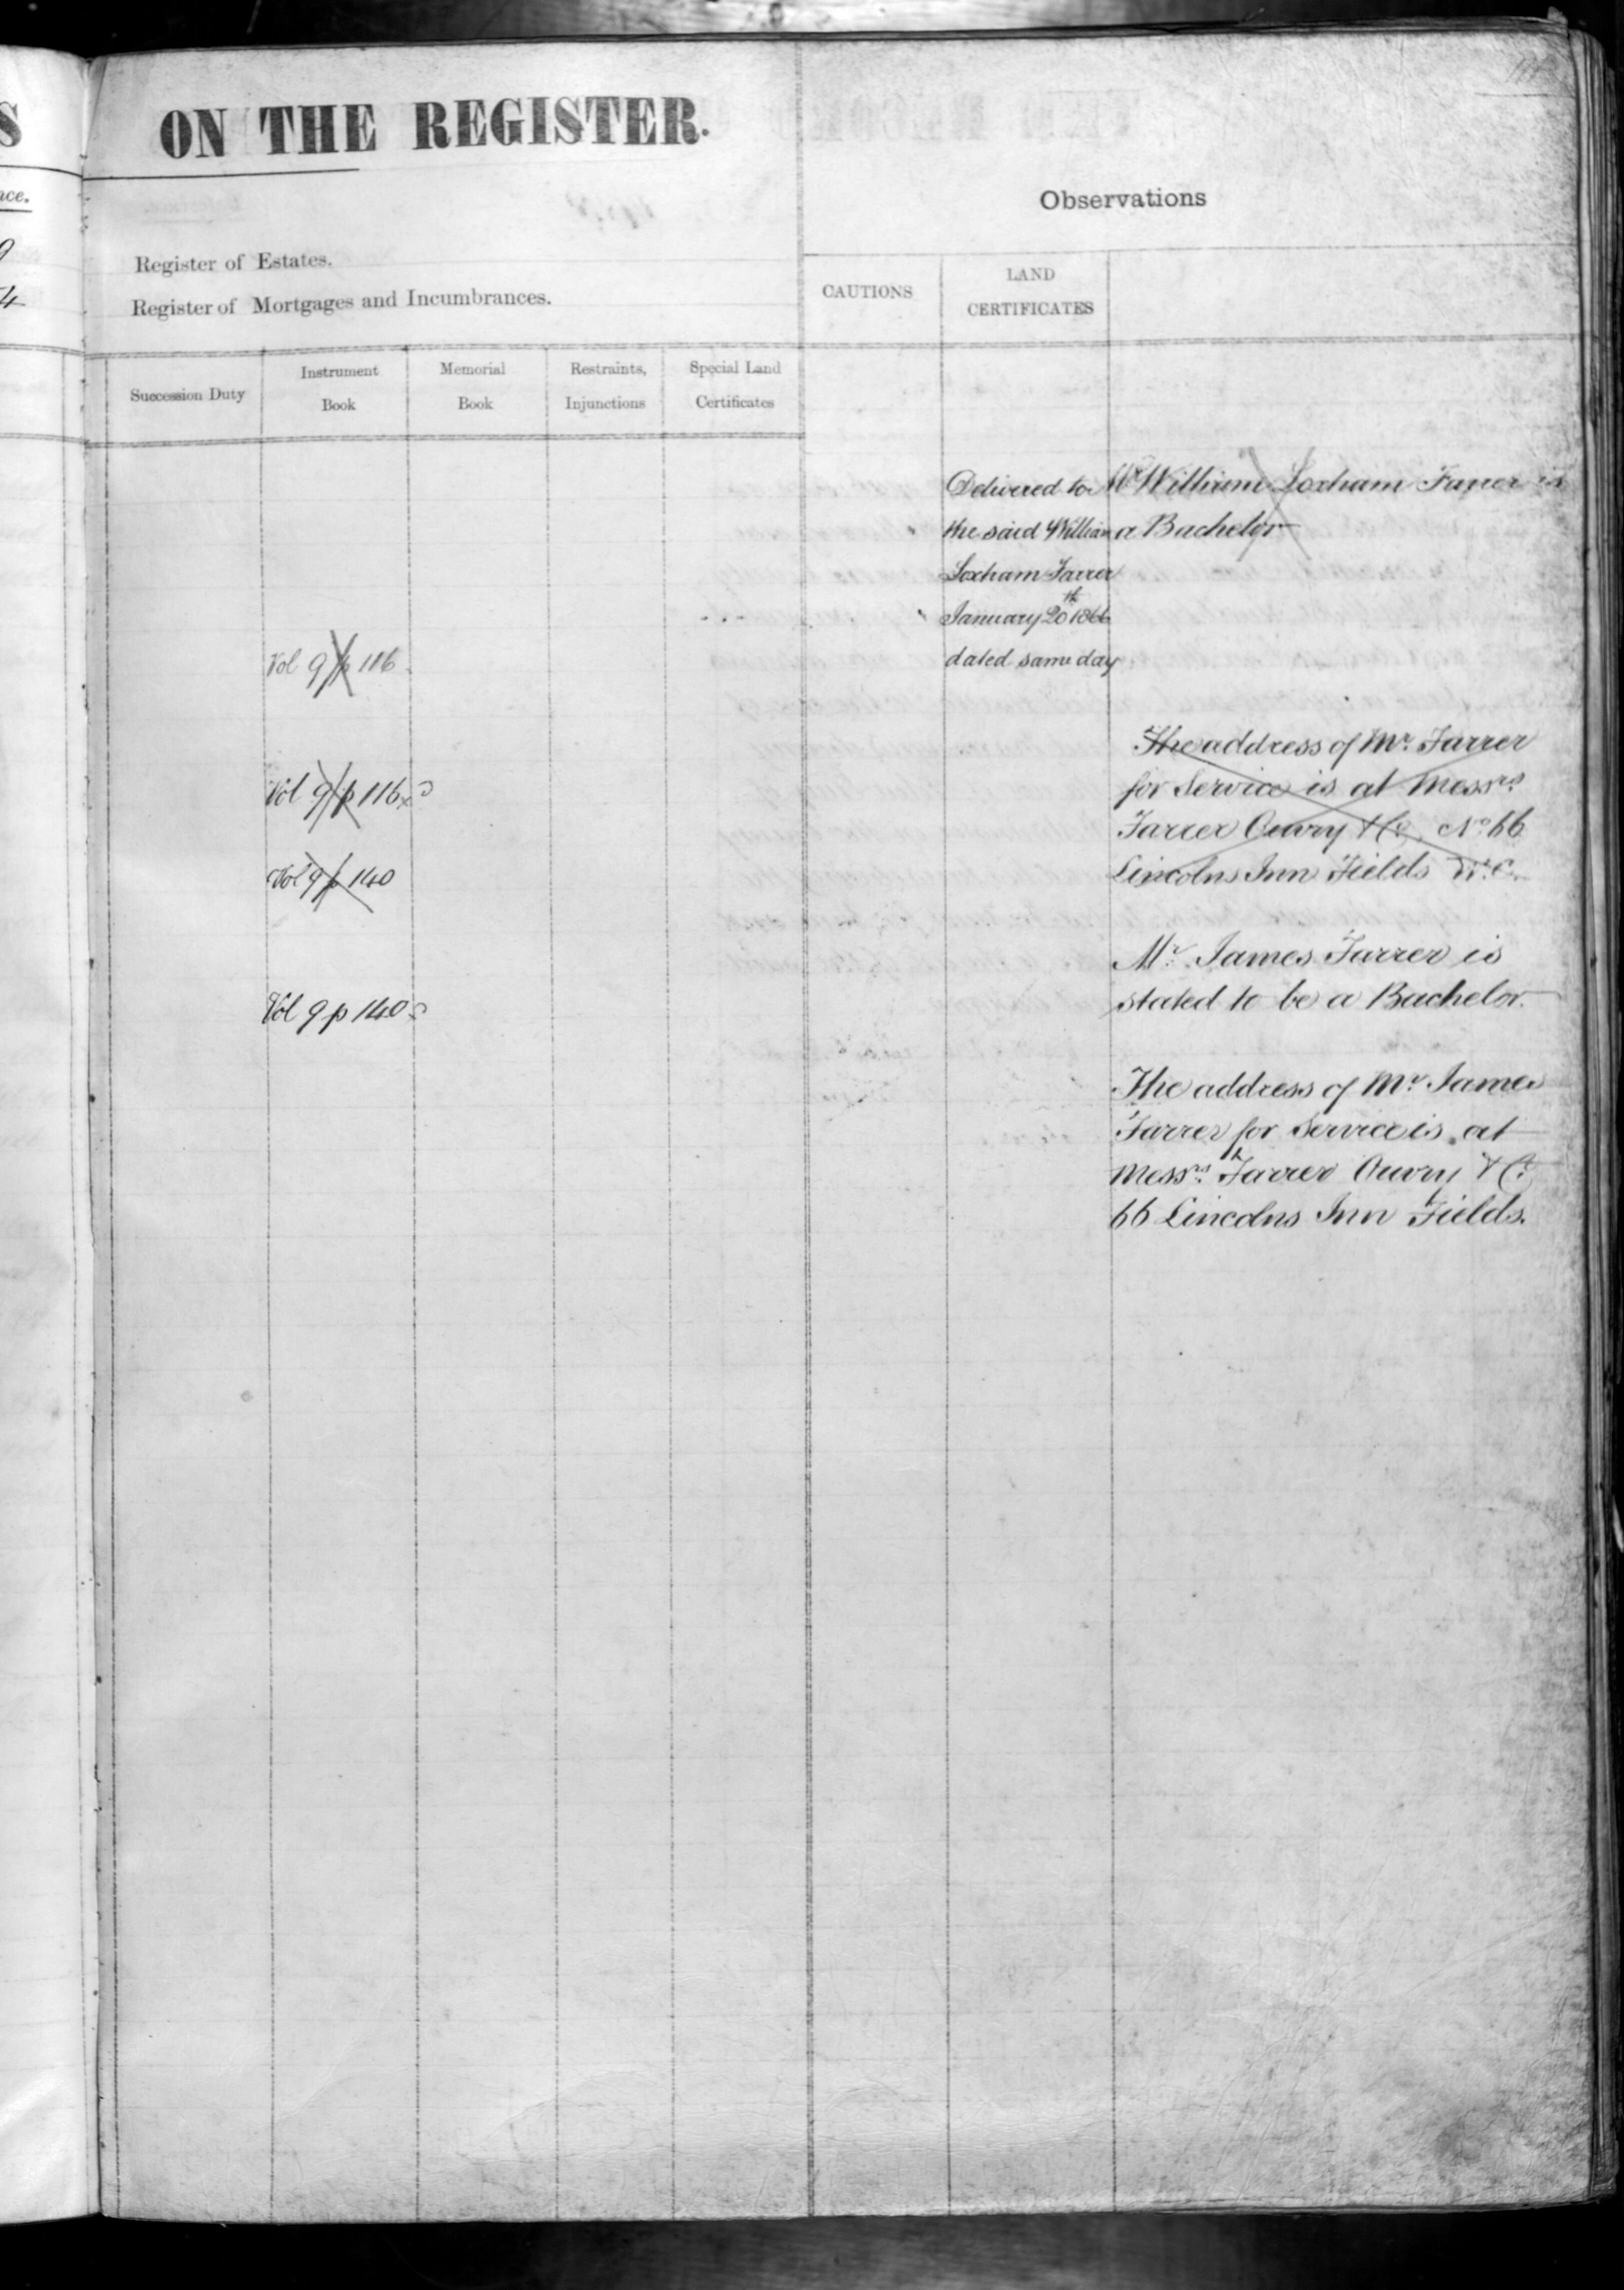 S
nce.
9
4
ON THE REGISTER.
Register of Estates.
Register of Mortgages and Incumbrances.
Succession Duty
Instrument
Book
Memorial
Book
Restraints,
Injunctions
Special Land
Certificates
Observations
CAUTIONS
LAND
CERTIFICATES
Vol 9 p 116
Vol 9 p 116
Vol 9 p 140
Vol 9 p 140
Delivered to
the said William
Loxham Farrer
January 20th 1866
dated same day
Mr William Loxham Farrer is
a Bachelor
The address of Mr. Farrer
for Service is at Messrs.
Farrer Ouvry & Co. No. 66
Lincolns Inn Fields W.C.
Mr. James Farrer is
stated to be a Bachelor.
The address of Mr. James
Farrer for Service is at
Messrs. Farrer Ouvry & Co.
66 Lincolns Inn Fields.